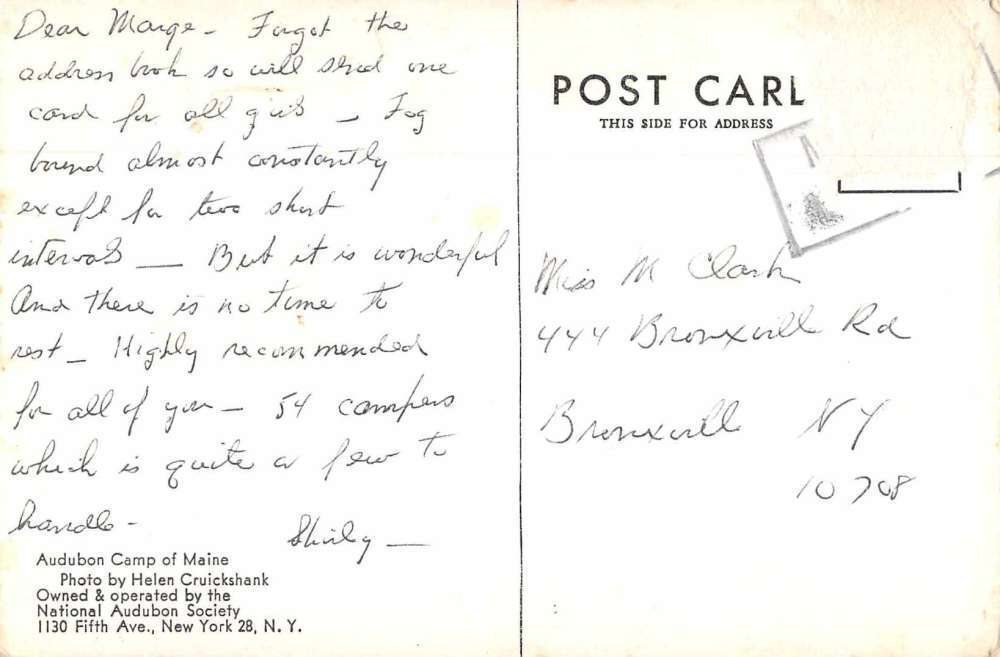 Dear Marge - Forgot the
address book so will send one
card for all girls - Fog
bound almost constantly
except for two short
intervals — But it is wonderful
And there is no time to
rest - Highly recommended
for all of you - 54 campers
which is quite a few to
handle -
Shirley —
Audubon Camp of Maine
Photo by Helen Cruickshank
Owned & operated by the
National Audubon Society
1130 Fifth Ave., New York 28, N. Y.
POST CAR
THIS SIDE FOR ADDRESS
Miss M Clark
444 Bronxvill Rd
Bronxvill NY
10708